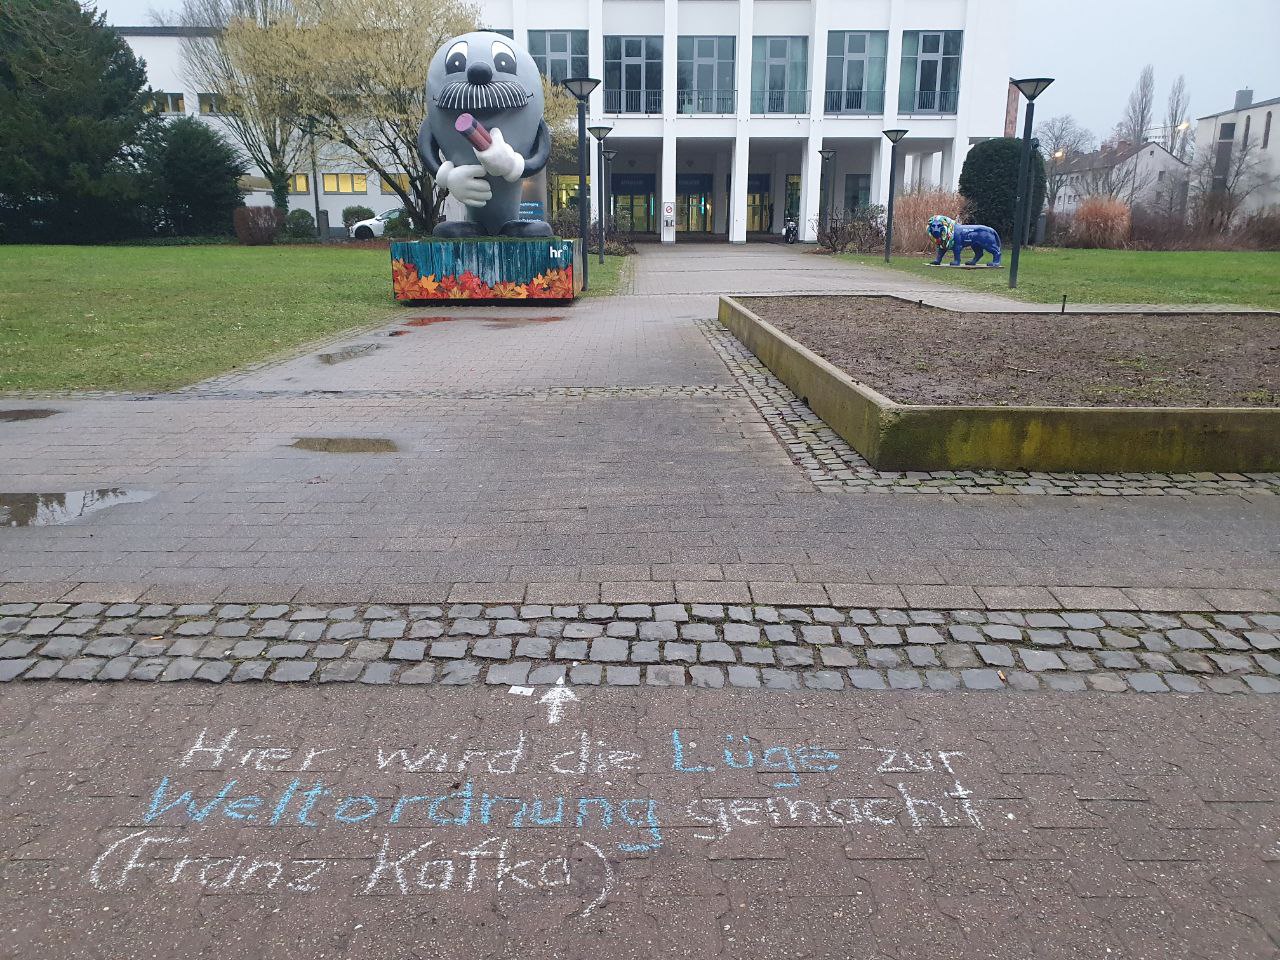 hr
Hier wird die Lüge zur
Weltordnung gemacht.
(Franz Kafka)